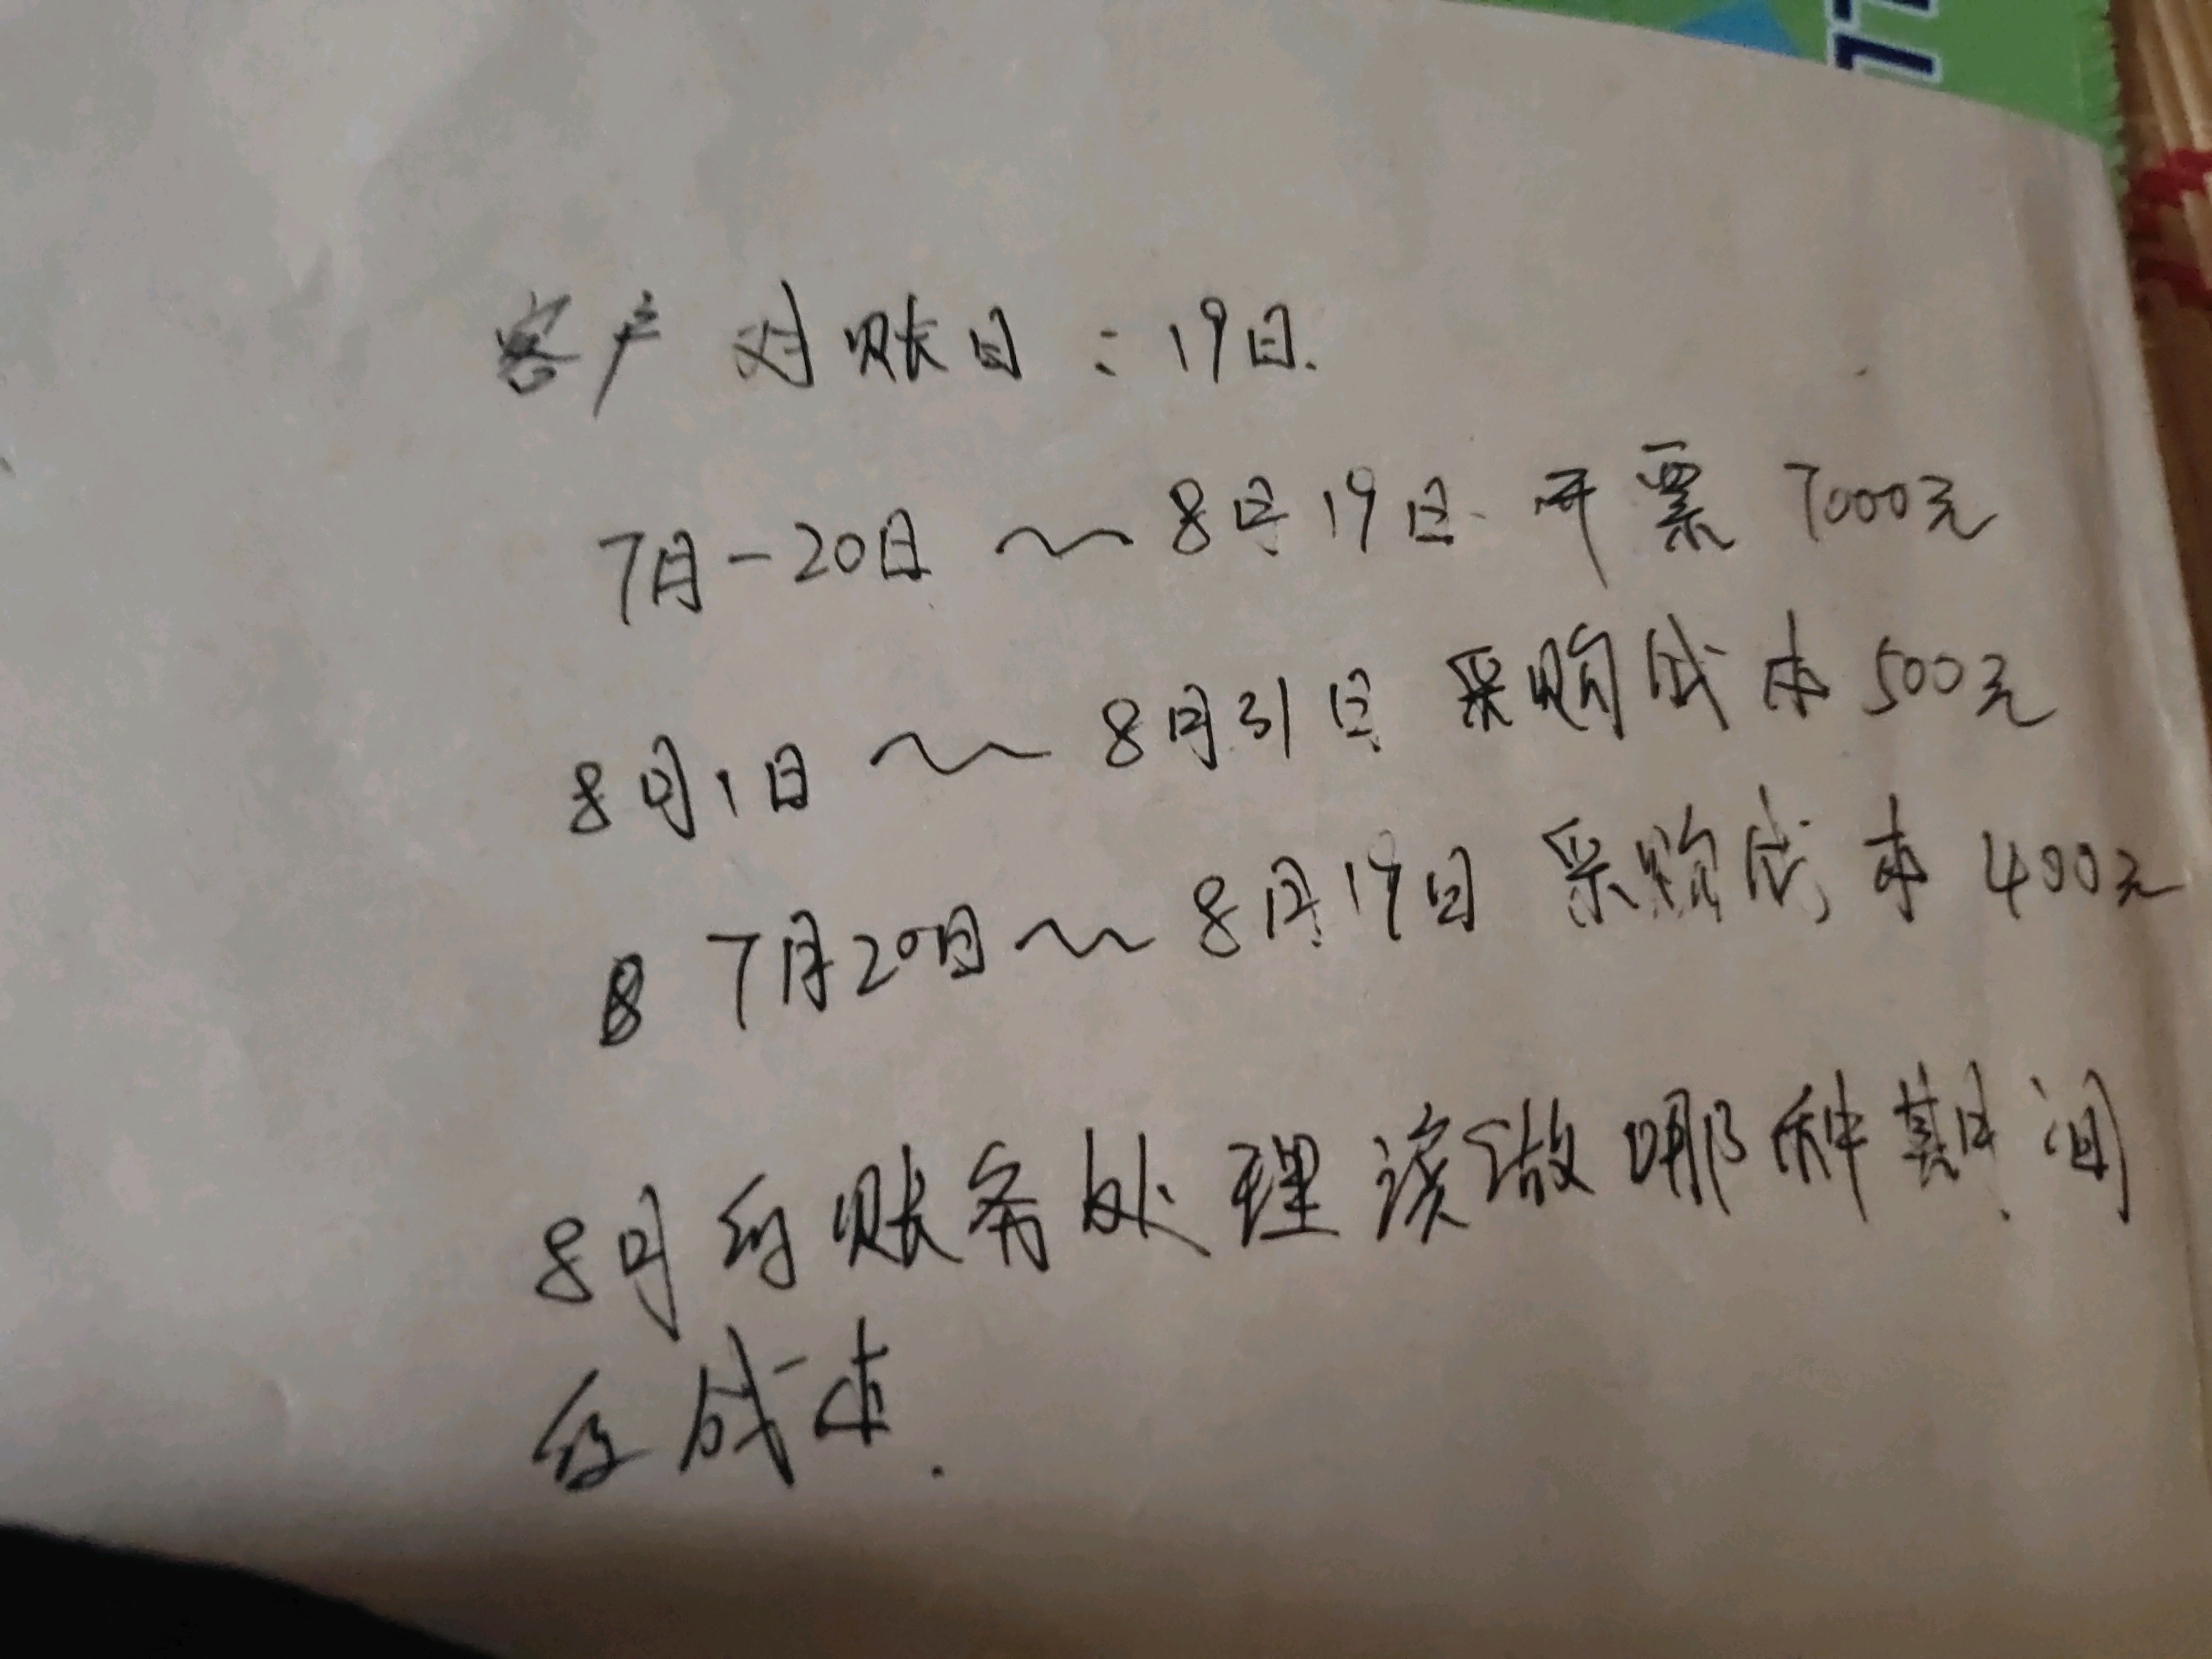 客户对账日：19日.
7月-20日～8月19日 开票 7000元
8月1日～8月31日 采购成本500元
8 7月20日～8月19日 采购成本400元
8月的账务处理该做哪种期间
的成本.